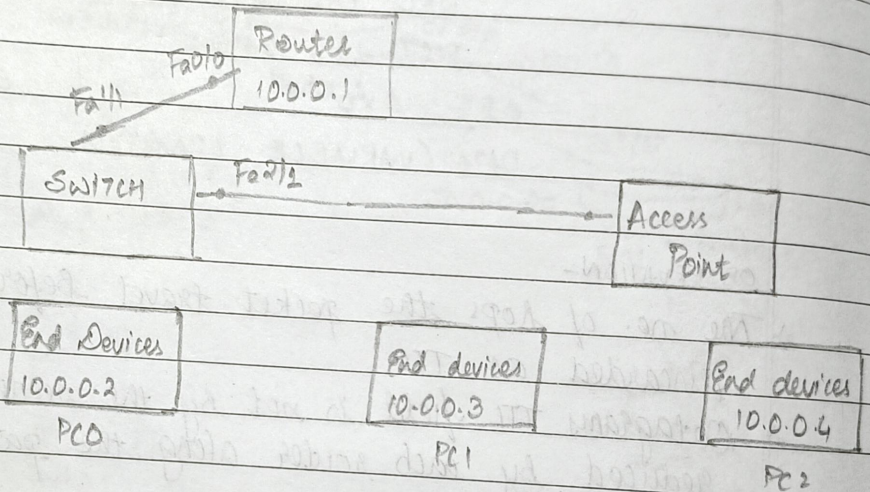 Router
10.0.0.1
Fa0/0
Fa1/1
SWITCH
Fa2/1
Access
Point
End Devices
10.0.0.2
PC0
End devices
10.0.0.3
PC1
End devices
10.0.0.4
PC2